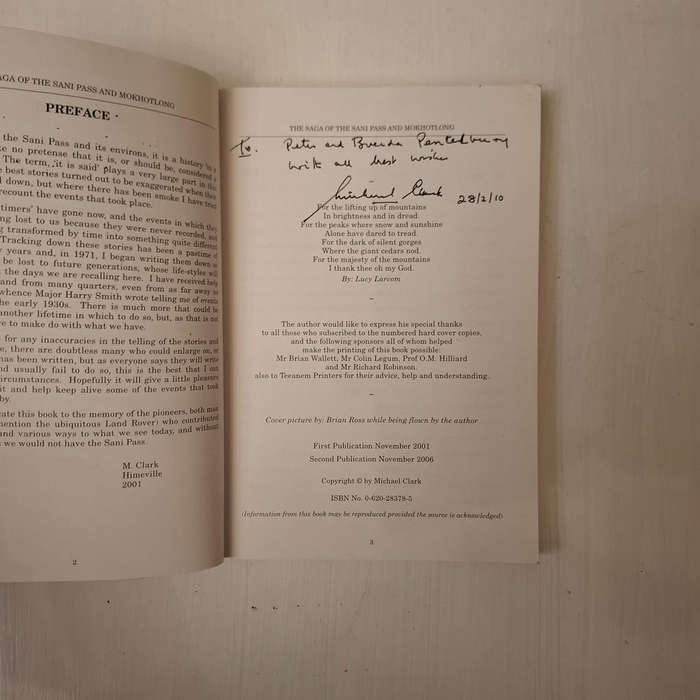 SAGA OF THE SANI PASS AND MOKHOTLONG
PREFACE
the Sani Pass and its environs, it is a history
no pretense that it is, or should be, considered a
The term, 'it is said' plays a very large part in this
best stories turned out to be exaggerated when
down, but where there has been smoke I have
recount the events that took place.
timers' have gone now, and the events in which they
lost to us because they were never recorded, and
transformed by time into something quite different
Tracking down these stories has been a pastime of
years and, in 1971, I began writing them down
be lost to future generations, whose life-styles will
the days we are recalling here. I have received help
and from many quarters, even from as far away as
whence Major Harry Smith wrote telling me of events
the early 1930s. There is much more that could be
another lifetime in which to do so, but, as that is not
to make do with what we have.
for any inaccuracies in the telling of the stories and
there are doubtless many who could enlarge on, or
has been written, but as everyone says they will write
and usually fail to do so, this is the best that I can
circumstances. Hopefully it will give a little pleasure
it and help keep alive some of the events that took
by.
this book to the memory of the pioneers, both
mention the ubiquitous Land Rover) who contributed
and various ways to what we see today, and without
we would not have the Sani Pass.
M. Clark
Himeville
2001
2
THE SAGA OF THE SANI PASS AND MOKHOTLONG
To. Peter and Brenda
with all best wishes
Michael Clark 28/2/10
For the lifting up of mountains
In brightness and in dread.
For the peaks where snow and sunshine
Alone have dared to tread.
For the dark of silent gorges
Where the giant cedars nod.
For the majesty of the mountains
I thank thee oh my God.
By: Lucy Larcom
The author would like to express his special thanks
to all those who subscribed to the numbered hard cover copies,
and the following sponsors all of whom helped
make the printing of this book possible:
Mr Brian Wallett, Mr Colin Legum, Prof O.M. Hilliard
and Mr Richard Robinson.
also to Teeanem Printers for their advice, help and understanding.
Cover picture by: Brian Ross while being flown by the author
First Publication November 2001
Second Publication November 2006
Copyright © by Michael Clark
ISBN No. 0-620-28378-5
(Information from this book may be reproduced provided the source is acknowledged)
3